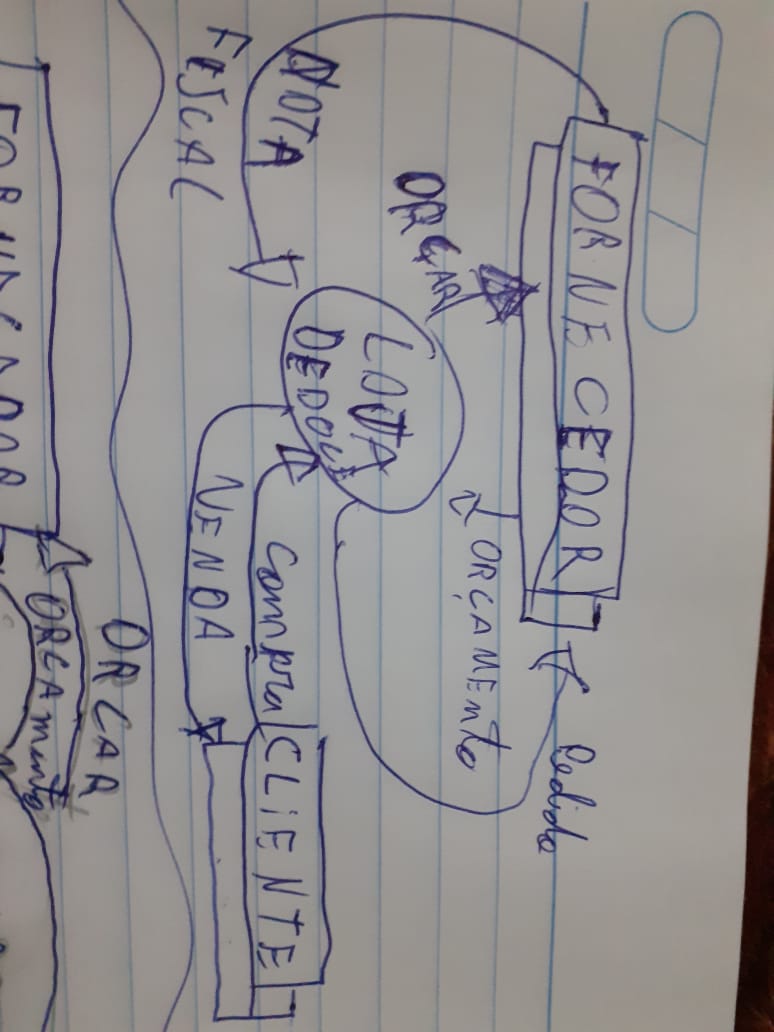 FORNECEDOR
Pedido
ORÇAMENTO
ORÇAR
LOJA
DE DOCE
NOTA
FISCAL
Compra
CLIENTE
VENDA
ORCAR
ORCAmento
FORNECEDOR